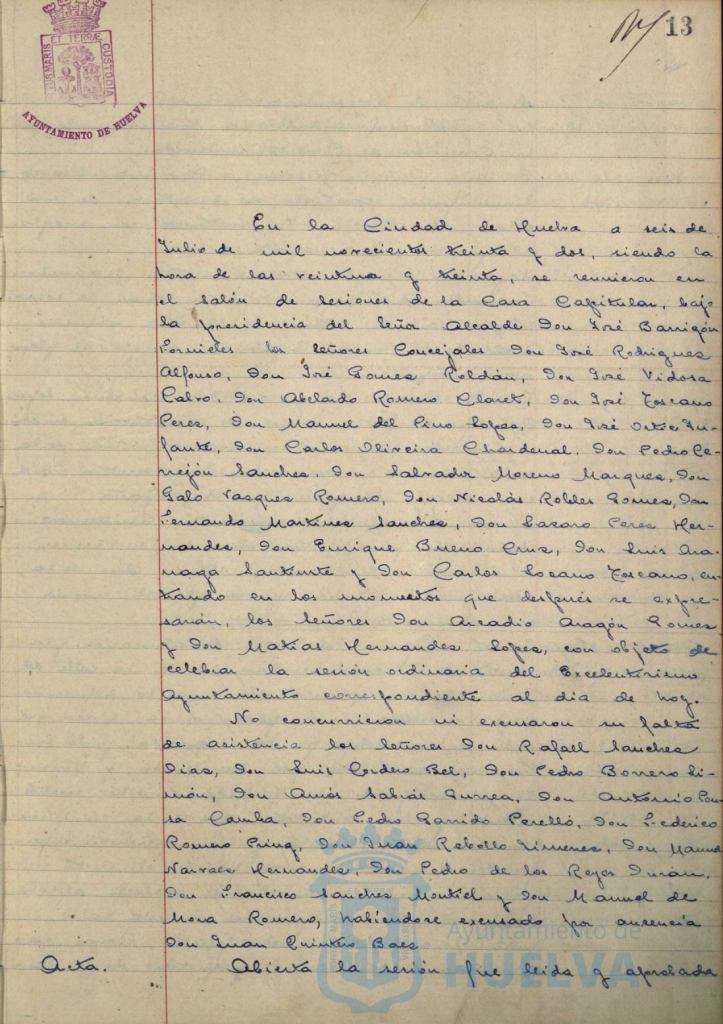 13
PORTUS MARIS ET TERRAE CUSTODIA
AYUNTAMIENTO DE HUELVA
En la Ciudad de Huelva a seis de
Julio de mil novecientos treinta y dos, siendo la
hora de las veintiuna y treinta, se reunieron en
el salón de sesiones de la Casa Capitular, bajo
la presidencia del Señor Alcalde Don José Barrigón
Fornieles los Señores Concejales Don José Rodriguez
Alfonso, Don José Gomez Roldán, Don José Vidosa
Calvo, Don Abelardo Romero Claret, Don José Toscano
Perez, Don Manuel del Pino Lopez, Don José Ortiz In-
fante, Don Carlos Oliveira Chardenal, Don Pedro Ce-
rrejón Sanchez, Don Salvador Moreno Marquez, Don
Galo Vazquez Romero, Don Nicolás Robles Gomez, Don
Fernando Martinez Sanchez, Don Lazaro Perez Her-
nandez, Don Enrique Bueno Cruz, Don Luis
y Don Carlos Lozano Toscano, en-
trando en los momentos que después se expre-
sarán, los Señores Don Arcadio Aragón Gomez
y Don Matías Hernandez Lopez, con objeto de
celebrar la sesión ordinaria del Excelentísimo
Ayuntamiento correspondiente al dia de hoy.
No concurrieron ni excusaron su falta
de asistencia los Señores Don Rafael Sanchez
Diaz, Don Luis Cordero Bel, Don Pedro Borrero Li-
món, Don Amós Sabrás Gurrea, Don Antonio Pou-
sa Camba, Don Pedro Garrido Perelló, Don Federico
Romero Don Juan Rebollo Jimenez, Don Manuel
Narvaez Hernandez, Don Pedro de los Reyes Durán,
Don Francisco Sanchez Montiel y Don Manuel de
Mora Romero, habiéndose excusado por ausencia
Don Juan Quintero Baez
Acta. Abierta la sesión fue leida y aprobada
Ayuntamiento de
HUELVA